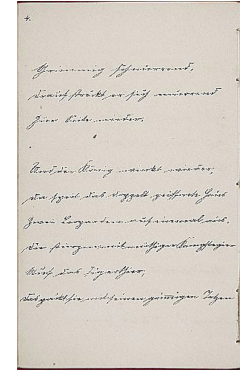 4.
Grimmig schnurrend,
Drauf streckt er sich murrend
Zur Seite nieder.
Und der König winkt wieder,
Da speit das doppelt geöffnete Haus
Zwei Leoparden auf einmal aus,
Die stürzen mit muthiger Kampfbegier
Auf das Tigerthier,
Das packt sie mit seinen grimmigen Tatzen